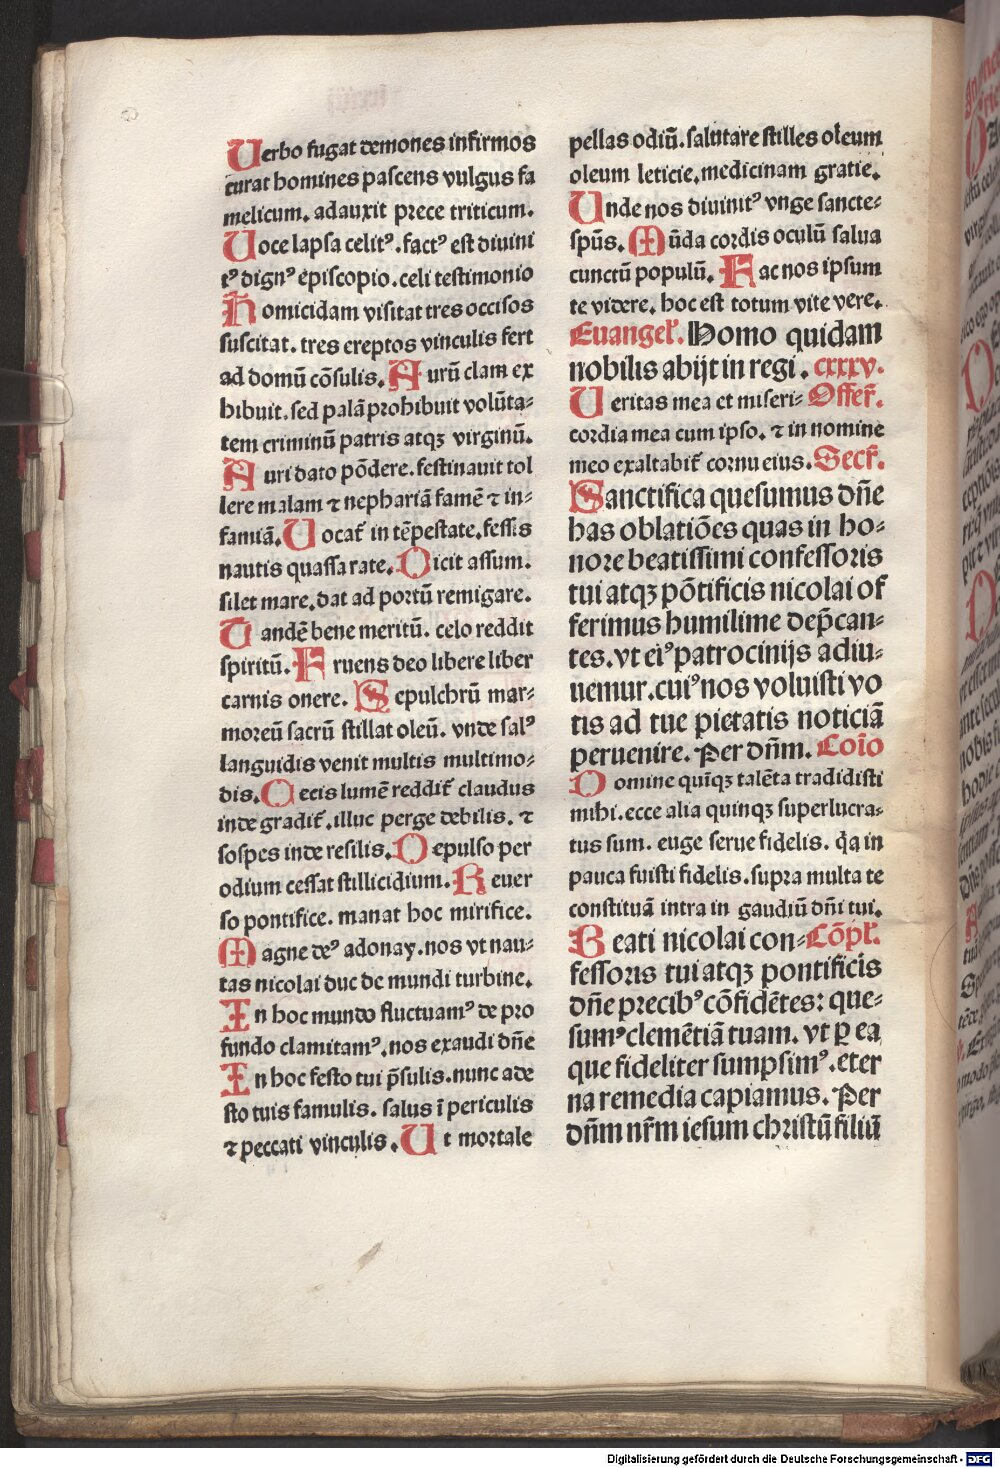 Verbo fugat demones infirmos
curat homines pascens vulgus fa
melicum. adauxit prece triticum.
Voce lapsa celitꝰ. factꝰ est diuini
tꝰ dignꝰ episcopio. celi testimonio
Homicidam visitat tres occisos
suscitat. tres ereptos vinculis fert
ad domū cōsulis. Aurū clam ex
hibuit. sed palā prohibuit volūta-
tem criminū patris atqꝫ virginū.
Auri dato pōdere. festinauit tol
lere malam ⁊ nephariā famē ⁊ in-
famiā. Vocat᷑ in tēpestate. fessis
nautis quassa rate. Dicit assum.
silet mare. dat ad portū remigare.
Tandē bene meritū. celo reddit
spiritū. Fruens deo libere liber
carnis onere. Sepulchrū mar-
moreū sacrū stillat oleū. vnde salꝰ
languidis venit multis multimo-
dis. Cecis lumē reddit᷑ claudus
inde gradit᷑. illuc perge debilis. ⁊
sospes inde resilis. Depulso per
odium cessat stillicidium. Reuer
so pontifice. manat hoc mirifice.
Magne deꝰ adonay. nos vt nau-
tas nicolai duc de mundi turbine.
In hoc mundo fluctuamꝰ de pro
fundo clamitamꝰ. nos exaudi dñe
In hoc festo tui p̄sulis. nunc ade
sto tuis famulis. salus ī periculis
⁊ peccati vinculis. Vt mortale
pellas odiū. salutare stilles oleum
oleum leticie. medicinam gratie.
Vnde nos diuinitꝰ vnge sancte-
sp̄us. Mūda cordis oculū salua
cunctū populū. Fac nos ipsum
te videre. hoc est totum vite vere.
Euangel᷑. Homo quidam
nobilis abijt in regi. cxxxv.
Veritas mea et miseri- Offer᷑.
cordia mea cum ipso. ⁊ in nomine
meo exaltabit᷑ cornu eius. Secr᷑.
Sanctifica quesumus dñe
has oblatiōes quas in ho-
nore beatissimi confessoris
tui atqꝫ pōtificis nicolai of
ferimus humilime dep̄can-
tes. vt eiꝰ patrocinijs adiu-
uemur. cuiꝰ nos voluisti vo
tis ad tue pietatis noticiā
peruenire. Per dñm. Coīo
Domine quīqꝫ talēta tradidisti
mihi. ecce alia quinqꝫ superlucra-
tus sum. euge serue fidelis. q̄a in
pauca fuisti fidelis. supra multa te
constituā intra in gaudiū dñi tui.
Beati nicolai con- Cōpl᷑.
fessoris tui atqꝫ pontificis
dñe precibꝰ cōfidētes: que-
sumꝰ clemētiā tuam. vt ꝑ ea
que fideliter sumpsimꝰ. eter
na remedia capiamus. Per
dñm nr̄m iesum christū filiū
Digitalisierung gefördert durch die Deutsche Forschungsgemeinschaft - DFG